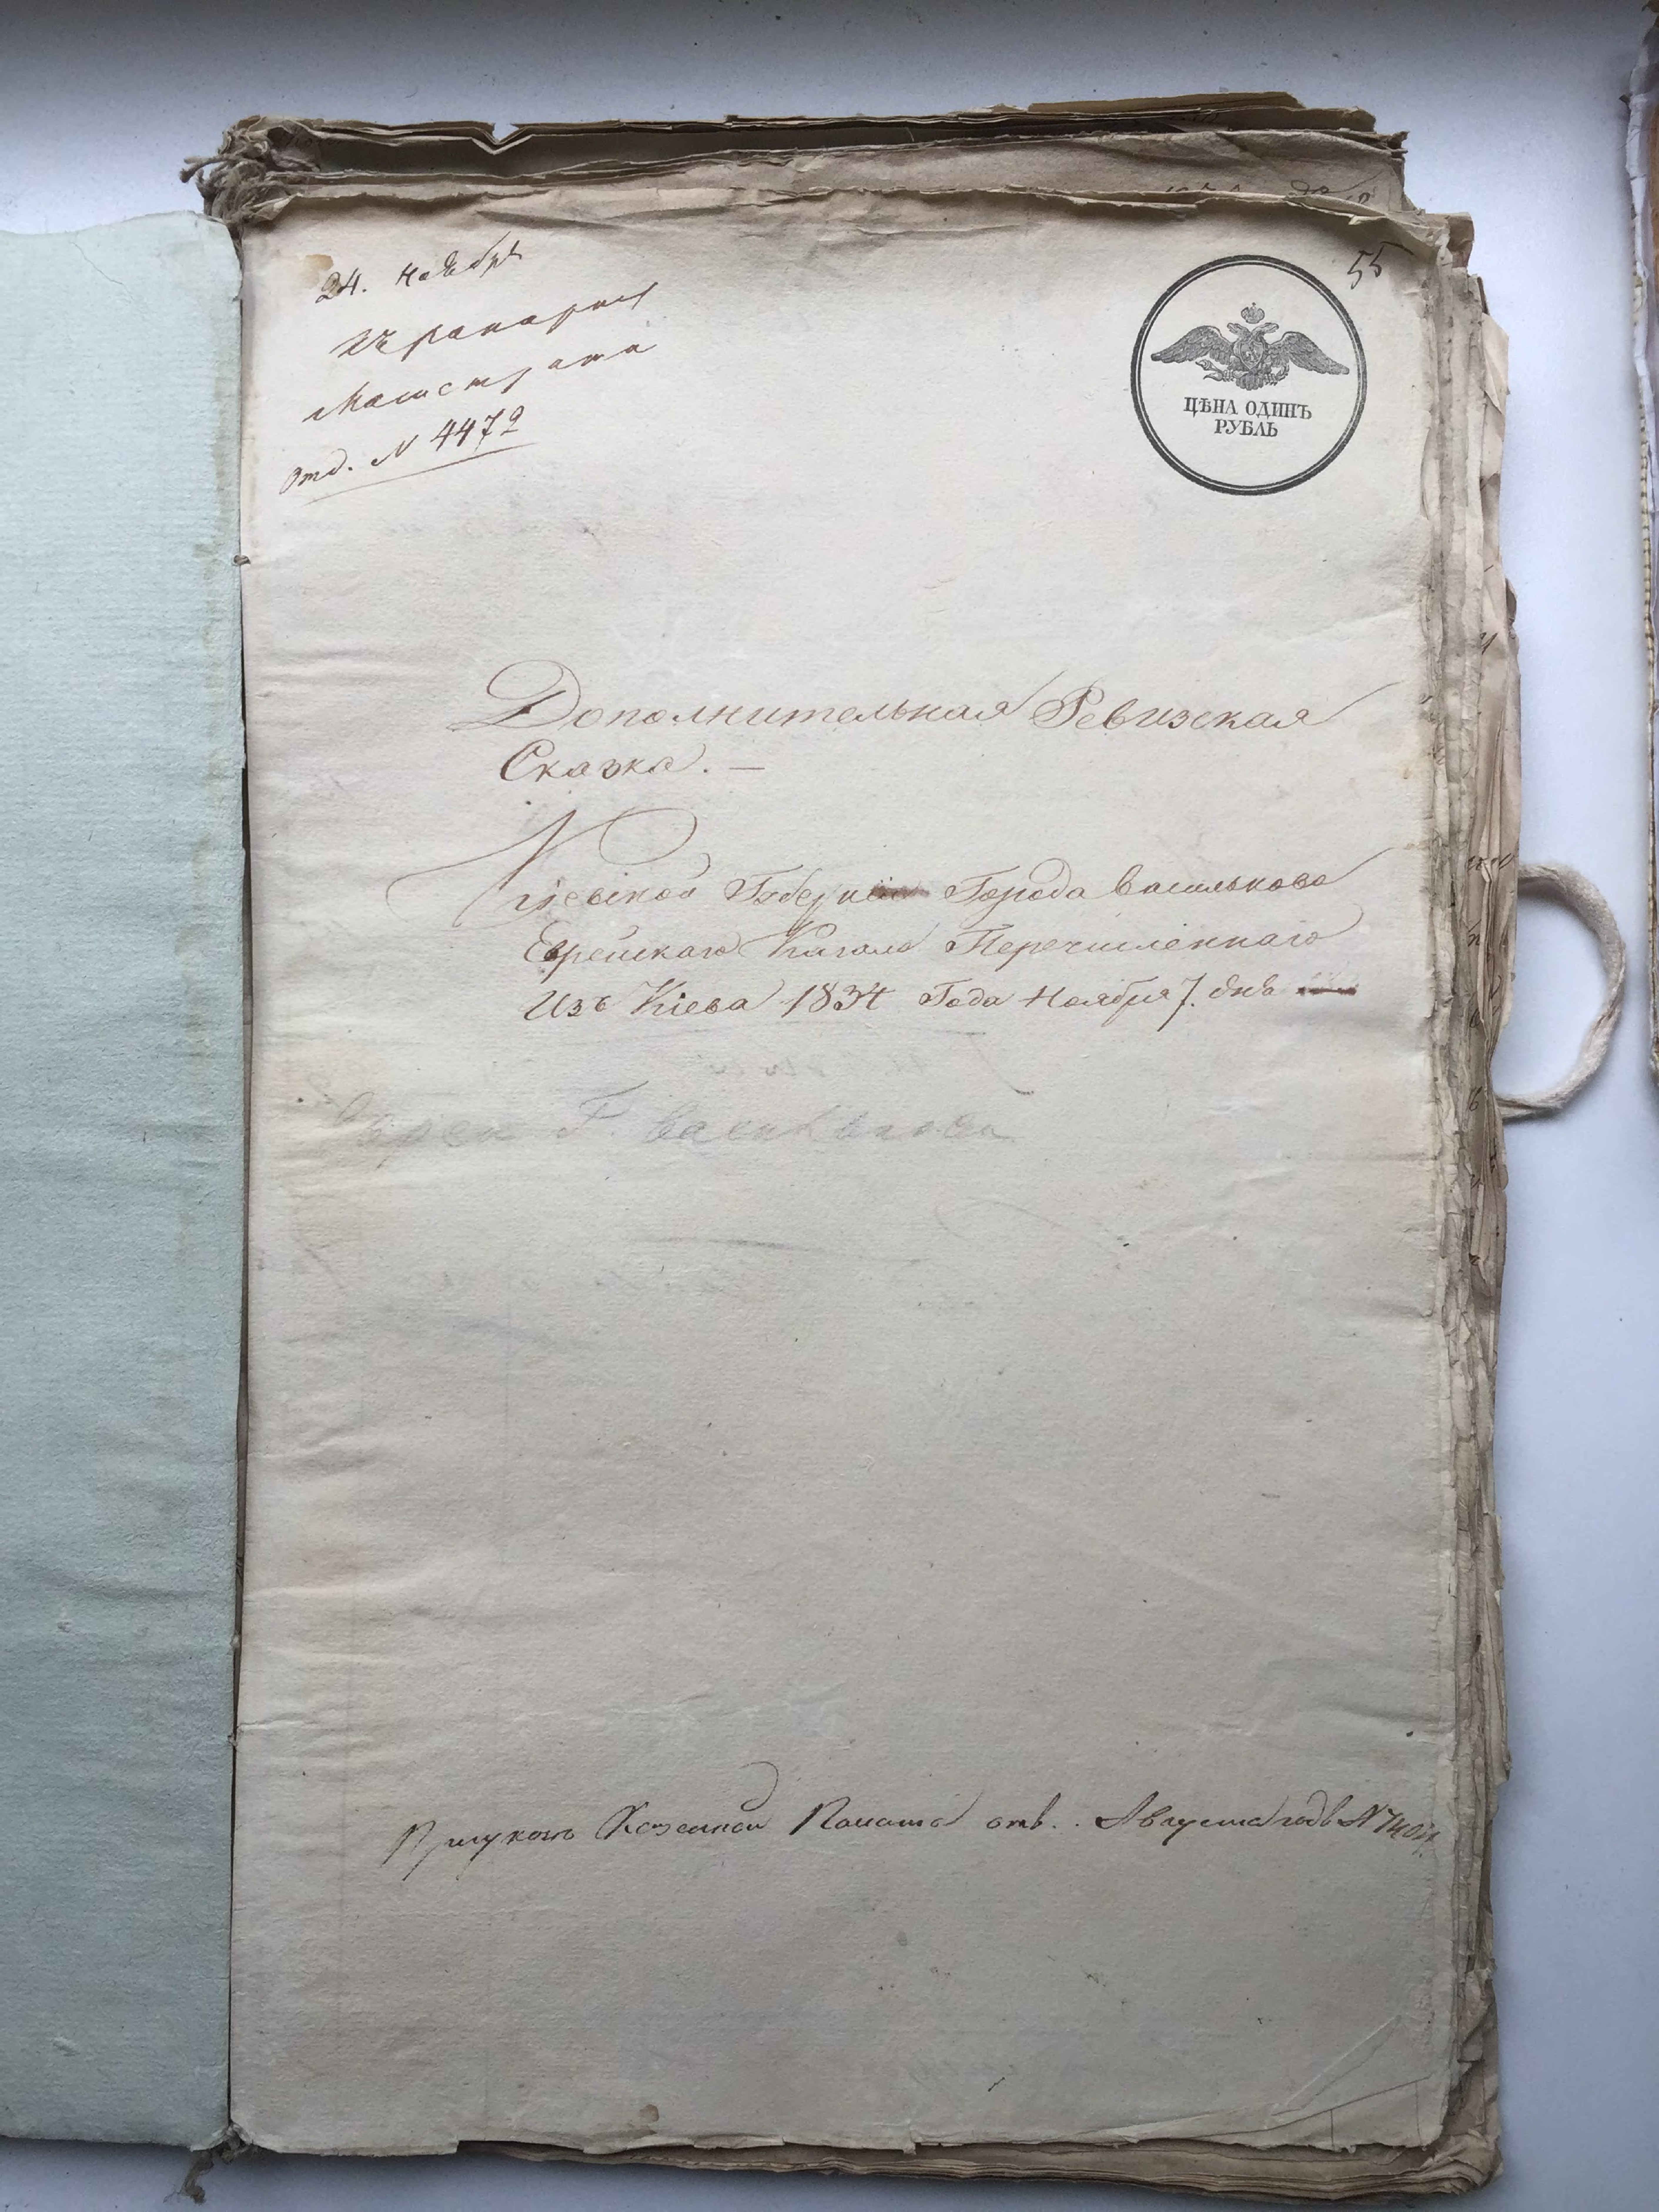 55
24. Ноября
Магистрата
Отд. N 4472
ЦѢНА ОДИНЪ
РУБЛЬ
Дополнительная Ревизская
Сказка. —
Кіевской Губерніи Города Василькова
Еврейскаго Кагала Перечисленнаго
Изъ Кіева 1834 Года Ноября 7. дня
Евреи Г. Василькова
Казенной Палаты отъ . Августа N